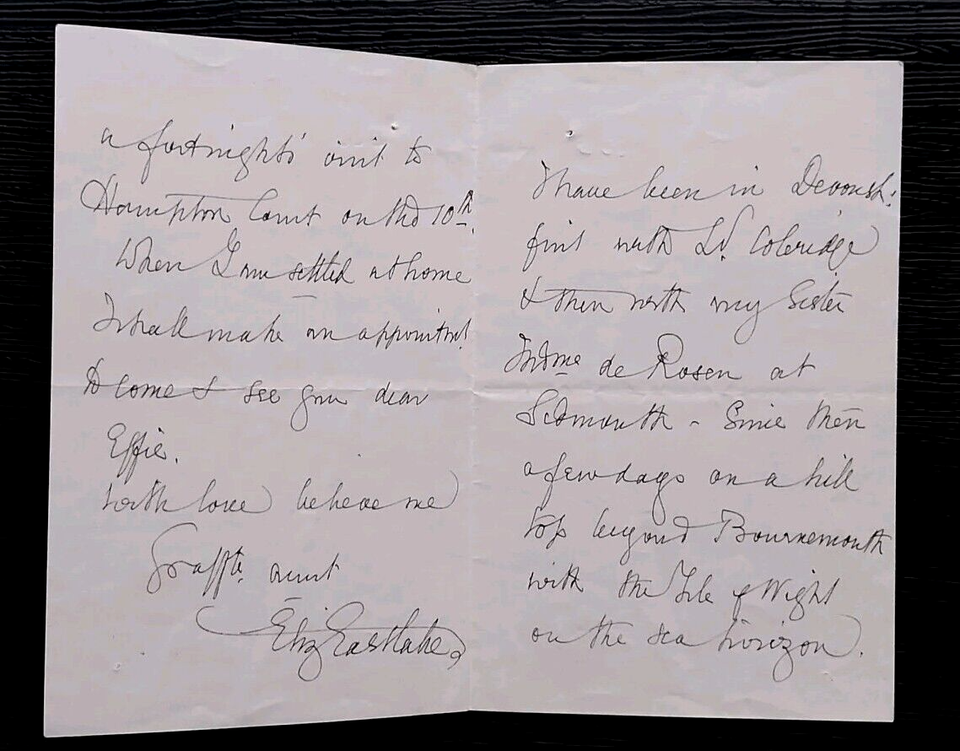 a fortnights' visit to
Hampton Court on the 10th.
When I am settled at home
I shall make an appointmt
to come & see you dear
Effie.
With love believe me
Yr affte. aunt
Eliz Eastlake
I have been in Devonsh:
first with Ld. Coleridge
& then with my Sister
Mdme de Rosen at
Sidmouth - Since then
a few days on a hill
top beyond Bournemouth
with the Isle of Wight
on the sea horizon.